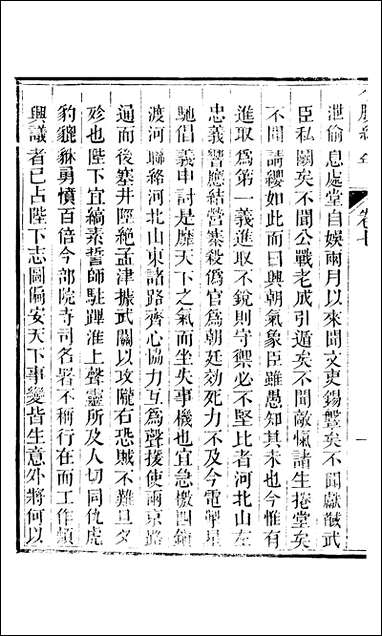 小腆紀年 卷七 一
泄偷息處堂自娛兩月以來聞文吏錫鞶矣不聞獻馘武
臣私鬭矣不聞公戰老成引遁矣不聞敵愾諸生捲堂矣
不聞請纓如此而曰興朝氣象臣雖愚知其未也今惟有
進取爲第一義進取不銳則守禦必不堅比者河北山左
忠義響應結營寨殺僞官爲朝廷効死力不及今電掣星
馳倡義申討是靡天下之氣而坐失事機也宜急檄四鎮
渡河聯絡河北山東諸路齊心協力互爲聲援使兩京路
通而後塞井陘絕孟津據武關以攻隴右恐賊不難旦夕
殄也陛下宜縞素誓師駐蹕淮上聲靈所及人切同仇虎
豹貔貅勇憤百倍今部院寺司名者不稱行在而工作頻
興議者已占陛下志圖偏安天下事變皆生意外將何以